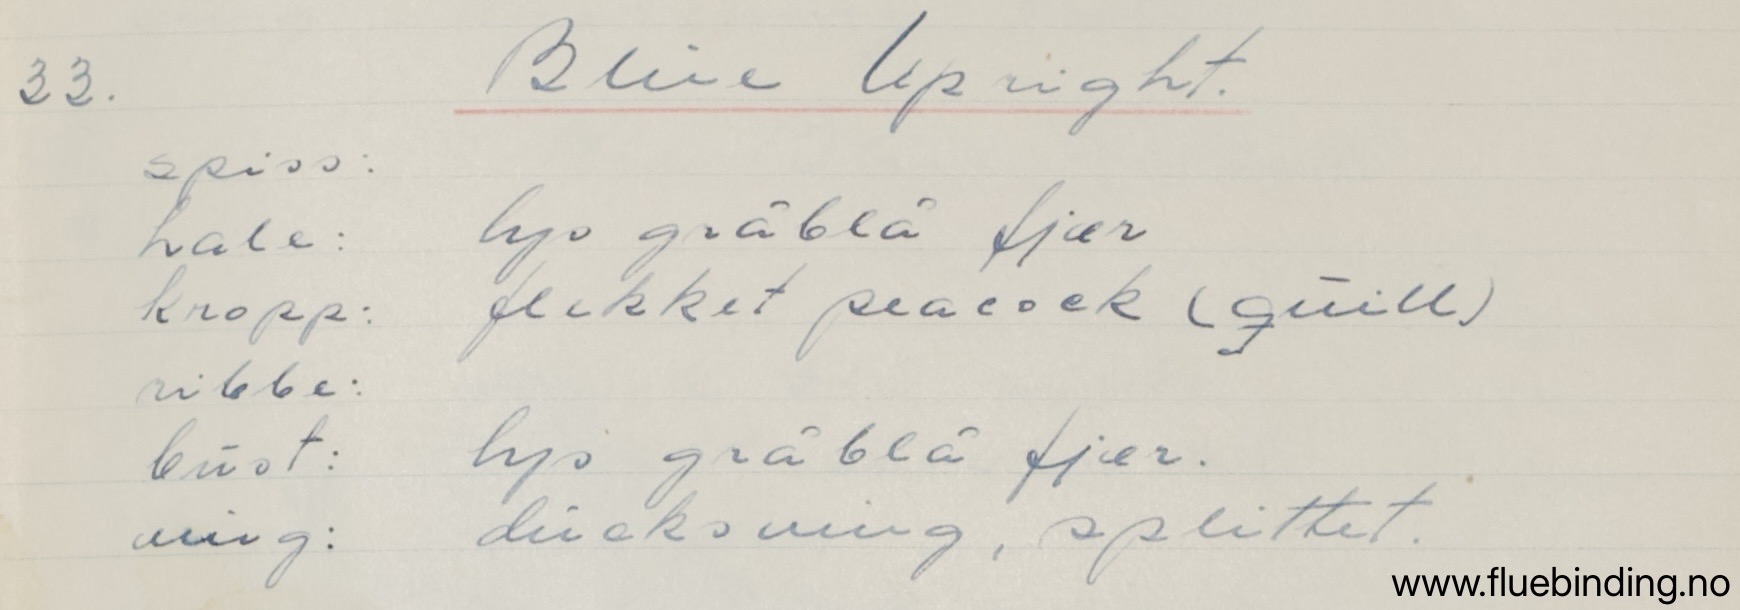 33. Blue Upright.
spiss:
hale: lys gråblå fjær
kropp: flekket peacock (quill)
ribbe:
bust: lys gråblå fjær.
ving: ducksving, splittet.
www.fluebinding.no